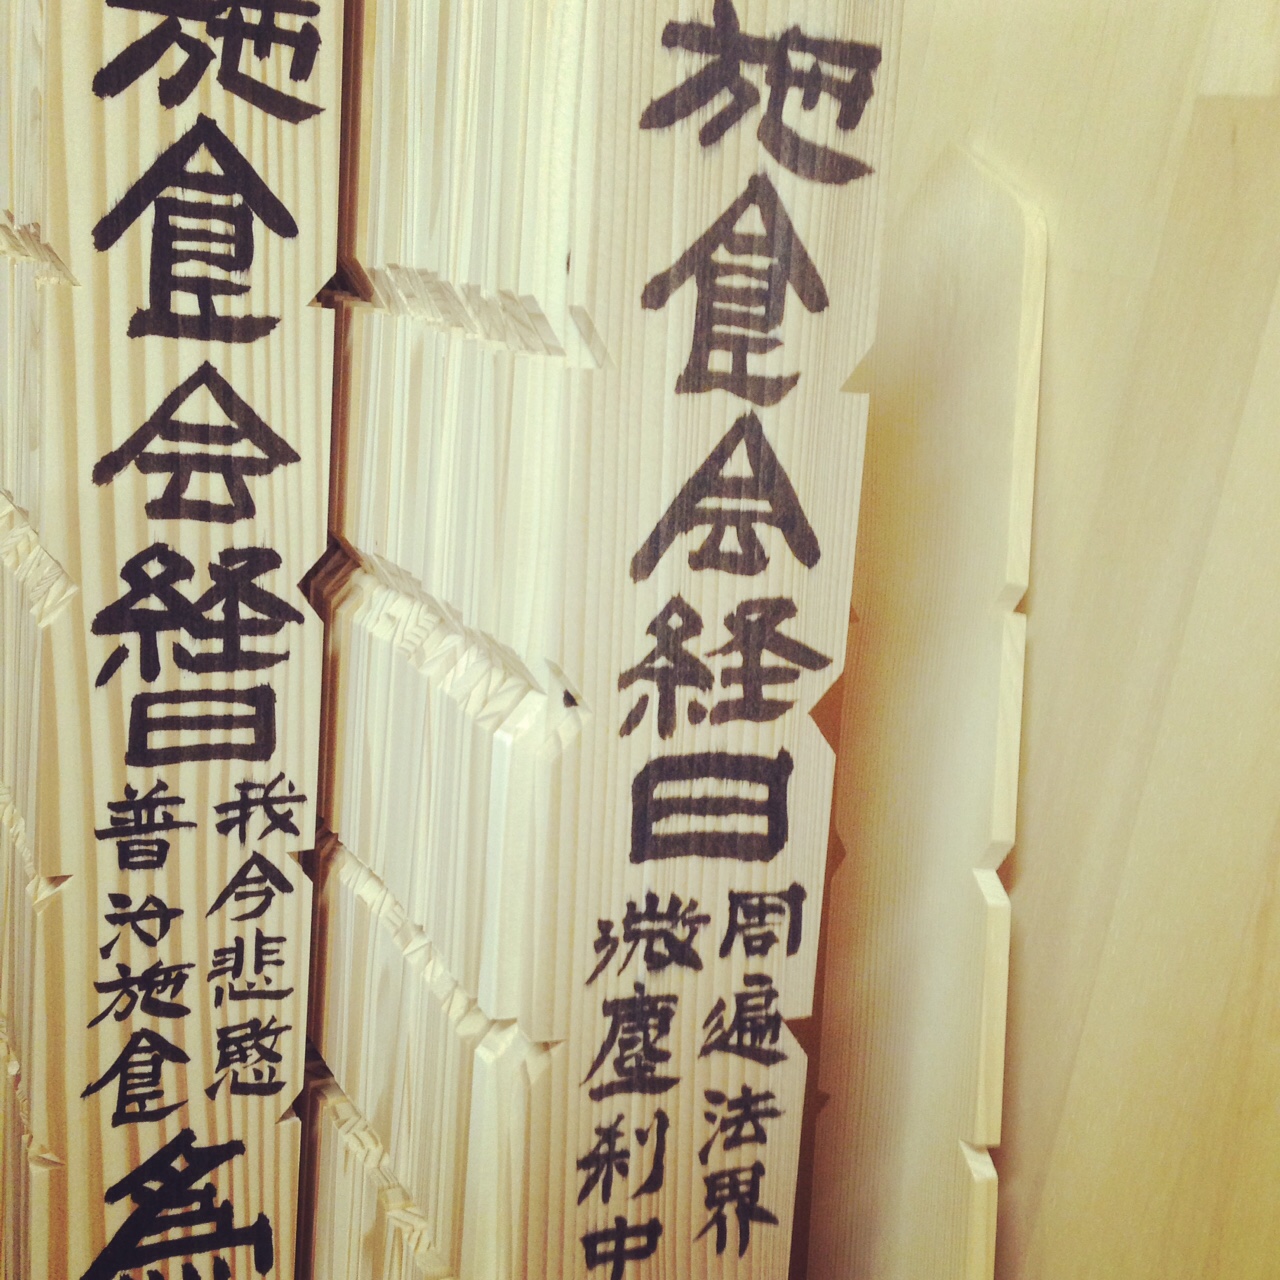 施食会経曰
周遍法界
微塵刹中
施食会経曰
我今悲愍
普汝施食
為